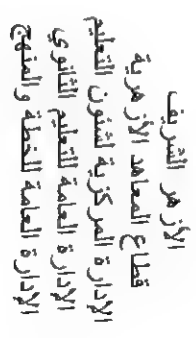 الأزهر الشريف
قطاع المعاهد الأزهرية
الإدارة المركزية لشئون التعليم
الإدارة العامة للتعليم الثانوي
الإدارة العامة للخطة والمنهج